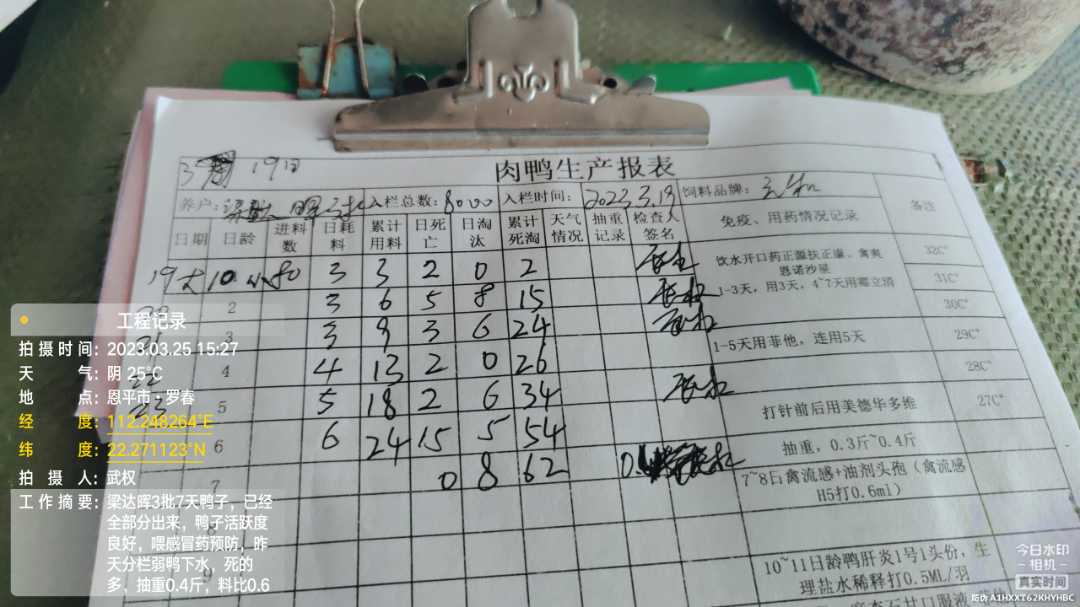 肉鸭生产报表
19日
养户: 入栏总数: 8000 入栏时间: 2023.3.19 饲料品牌:
日期 日龄 进料数 日耗料 累计用料 日死亡 日淘汰 累计死淘 天气情况 抽重记录 检查人签名 免疫、用药情况记录 备注
19 80 3 3 2 0 2 饮水开口药正源扶正康、禽爽 32C°
恩诺沙星
2 3 6 5 8 15 1-3天,用3天,4~7天用 31C°
3 3 9 3 6 24 30C°
4 4 13 2 0 26 1-5天用菲他,连用5天 29C°
28C°
23 5 5 18 2 6 34 打针前后用美德华多维 27C°
6 6 24 15 5 54 抽重,0.3斤~0.4斤
0 8 62 7~8日禽流感+油剂头孢(禽流感
H5打0.6ml)
10~11日龄鸭肝炎1号1头份,生
理盐水稀释打0.5ML/羽
工程记录
拍摄时间: 2023.03.25 15:27
天气: 阴 25°C
地点: 恩平市·罗春
经度: 112.248264°E
纬度: 22.271123°N
拍摄人: 武权
工作摘要: 梁达晖3批7天鸭子,已经
全部分出来,鸭子活跃度
良好,喂感冒药预防,昨
天分栏弱鸭下水,死的
多,抽重0.4斤,料比0.6
今日水印
-相机-
真实时间
防伪 A1HXXT62KHYHBC